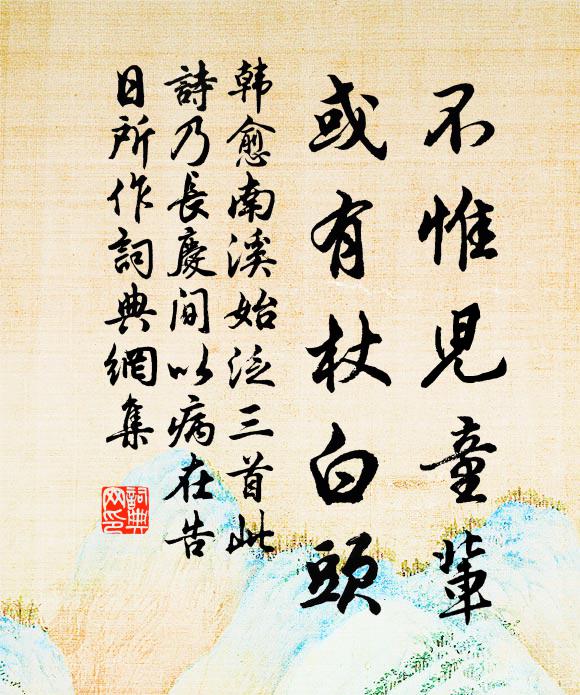 不惟児童輩
或有杖白頭
韩愈南溪始泛三首此
詩乃長慶间以病在告
日所作詞典網集
詞典网印